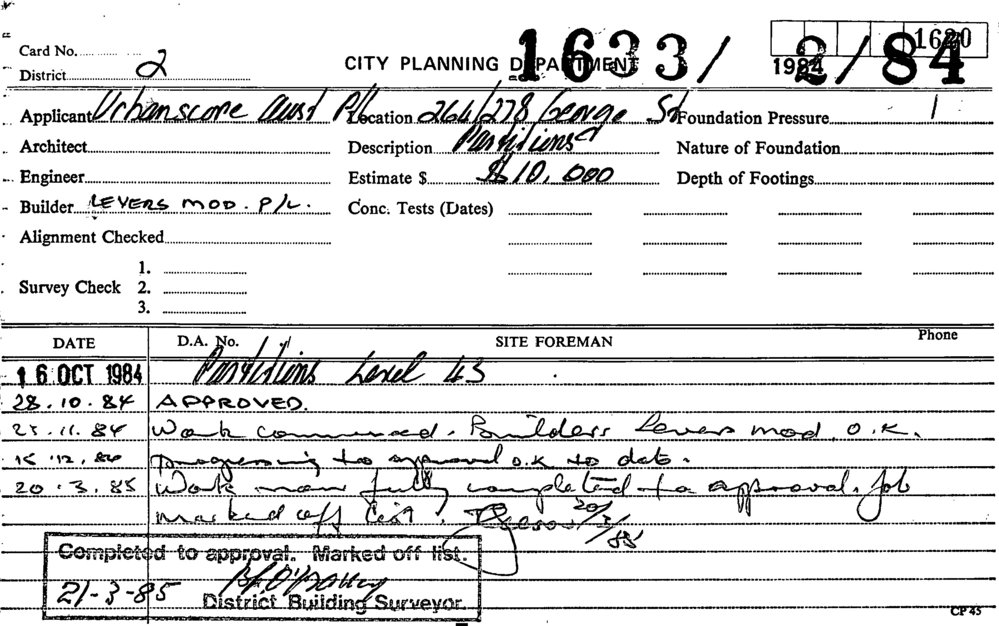 1620
Card No. CITY PLANNING DEPARTMENT 1633/2/84 1984
District 2
Applicant Urbanscope Aust P/L Location 264/278 George St Foundation Pressure
Architect Description Partitions Nature of Foundation
Engineer Estimate $ $10,000 Depth of Footings
Builder LEVERS MOD. P/L. Conc. Tests (Dates)
Alignment Checked
1.
Survey Check 2.
3.
DATE D.A. No. SITE FOREMAN Phone
16 OCT 1984 Partitions Level 43
28.10.84 APPROVED.
25.11.84 Work commenced. Builders Levers mod. O.K.
12.84 progressing to approval o.k to date.
20.3.85 Work now fully completed to approval. Job
marked off list. 20/3/85
Completed to approval. Marked off list.
21-3-85
District Building Surveyor.
CP 45